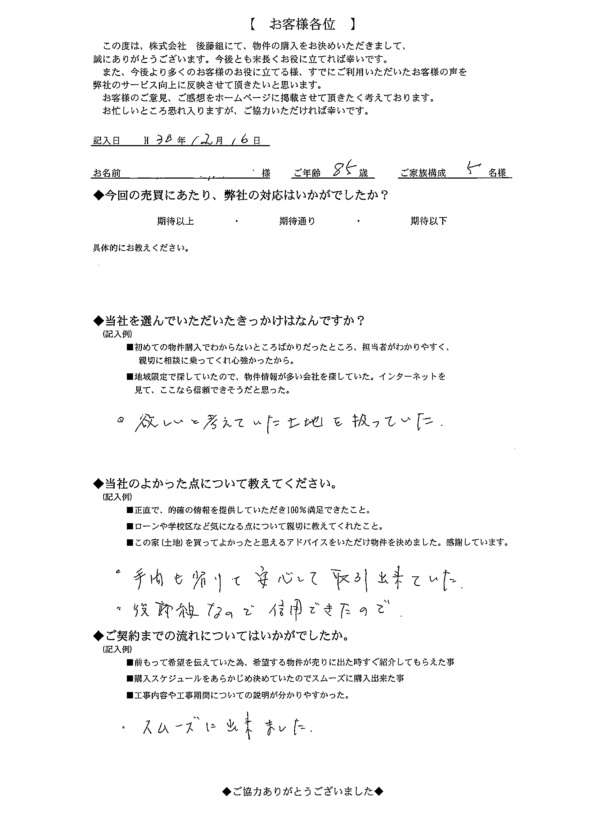 【 お客様各位 】
この度は、株式会社 後藤組にて、物件の購入をお決めいただきまして、
誠にありがとうございます。今後とも末長くお役に立てれば幸いです。
また、今後より多くのお客様のお役に立てる様、すでにご利用いただいたお客様の声を
弊社のサービス向上に反映させて頂きたいと思います。
お客様のご意見、ご感想をホームページに掲載させて頂きたく考えております。
お忙しいところ恐れ入りますが、ご協力いただければ幸いです。
記入日 H 30 年 12 月 16 日
お名前 様 ご年齢 85 歳 ご家族構成 5 名様
◆今回の売買にあたり、弊社の対応はいかがでしたか?
期待以上 ・ 期待通り ・ 期待以下
具体的にお教えください。
◆当社を選んでいただいたきっかけはなんですか?
(記入例)
■初めての物件購入でわからないところばかりだったところ、担当者がわかりやすく、
親切に相談に乗ってくれ心強かったから。
■地域限定で探していたので、物件情報が多い会社を探していた。インターネットを
見て、ここなら信頼できそうだと思った。
・欲しいと考えていた土地を扱っていた.
◆当社のよかった点について教えてください。
(記入例)
■正直で、的確の情報を提供していただき100%満足できたこと。
■ローンや学校区など気になる点について親切に教えてくれたこと。
■この家(土地)を買ってよかったと思えるアドバイスをいただけ物件を決めました。感謝しています。
・手間も省けて安心して取引出来ていた.
・後藤組なので信用できたので.
◆ご契約までの流れについてはいかがでしたか。
(記入例)
■前もって希望を伝えていた為、希望する物件が売りに出た時すぐ紹介してもらえた事
■購入スケジュールをあらかじめ決めていたのでスムーズに購入出来た事
■工事内容や工事期間についての説明が分かりやすかった。
・スムーズに出来ました.
◆ご協力ありがとうございました◆